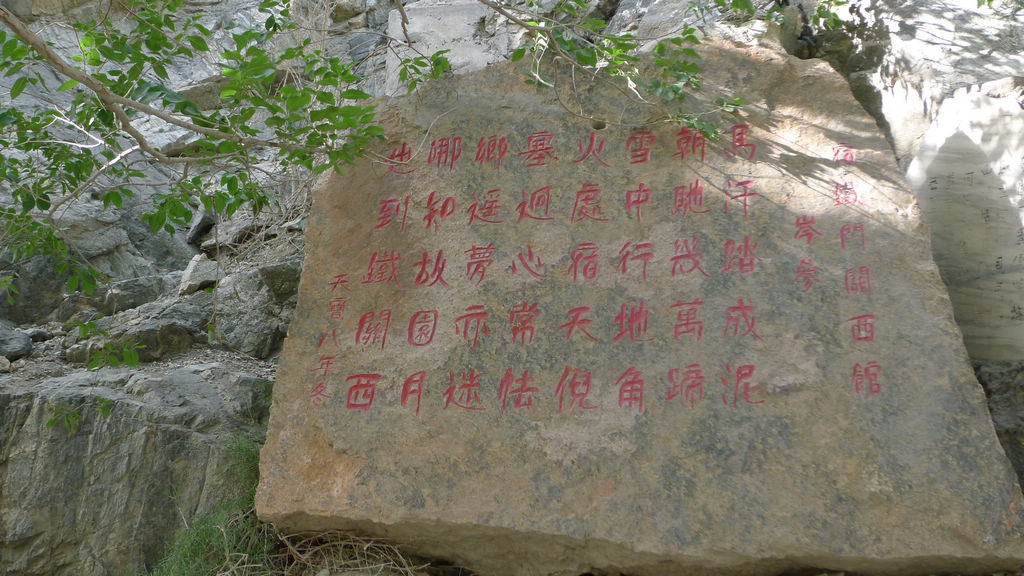 宿鐵門關西館
岑參
馬汗踏成泥
朝馳幾萬蹄
雪中行地角
火處宿天倪
塞迴心常怯
鄉遥夢亦迷
哪知故園月
也到鐵關西
天寶八年冬